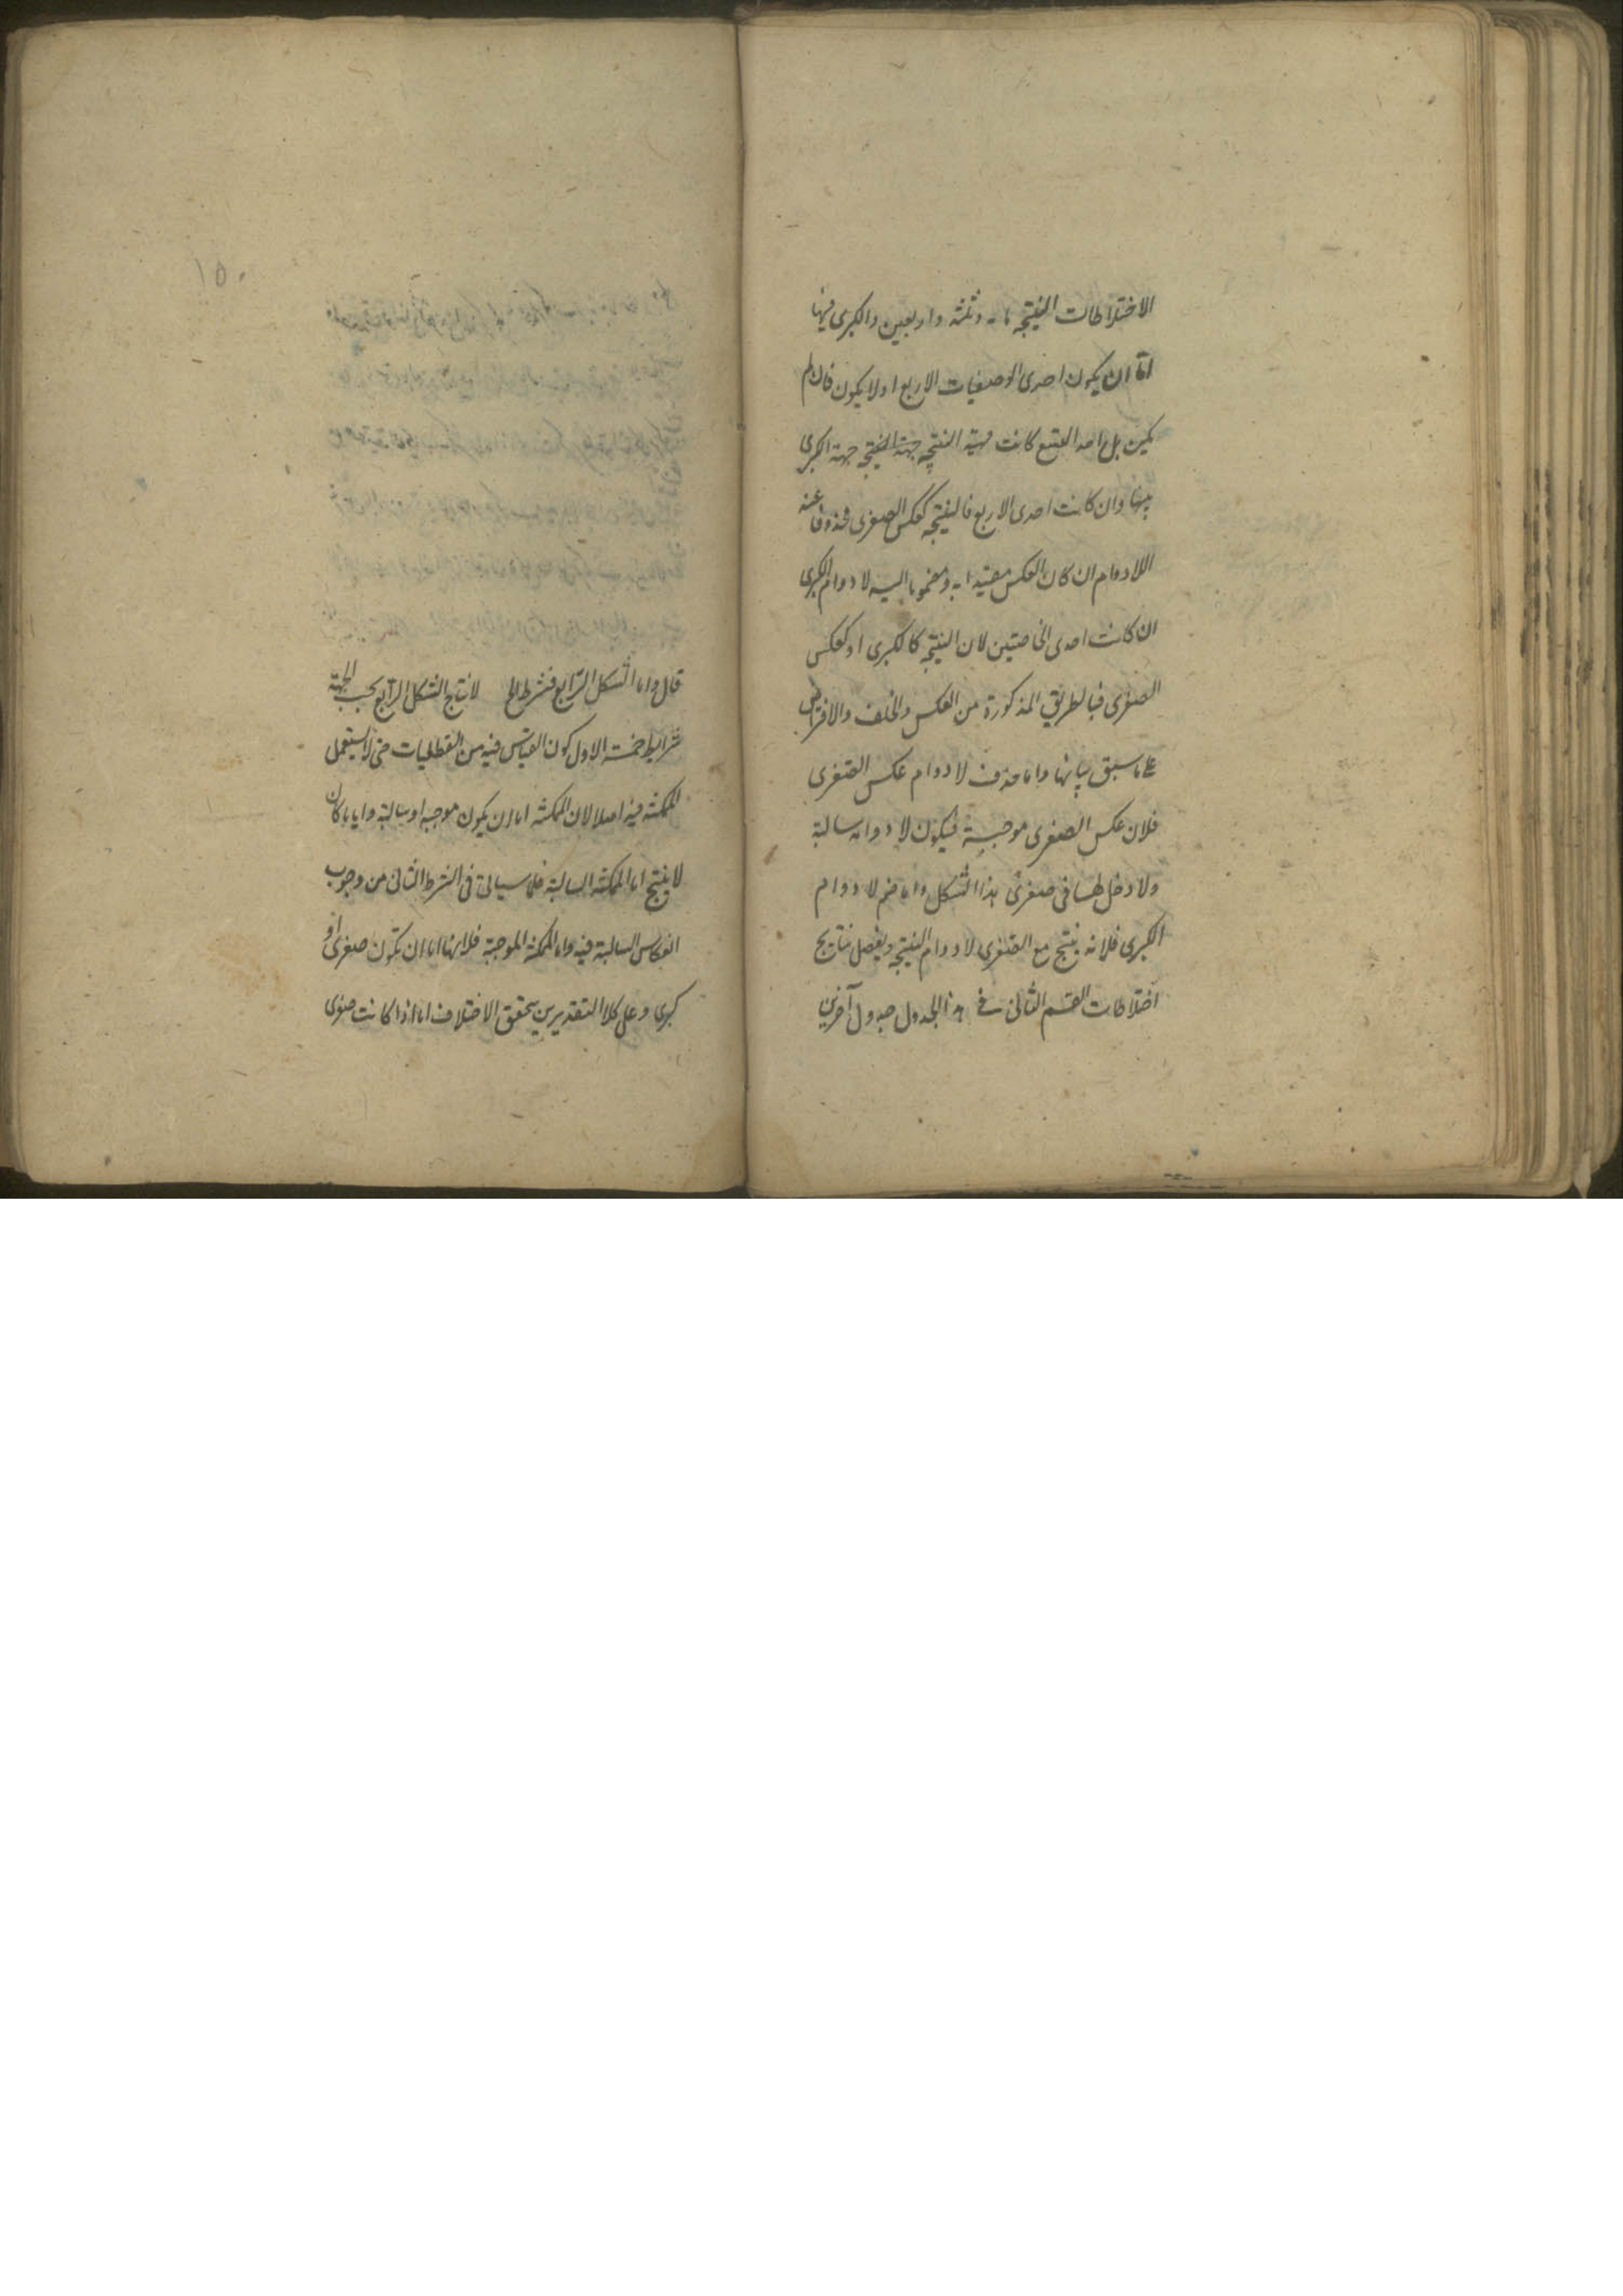 الاختلاطات المنتجة ماية وثلثة واربعين والكبرى فيها
اما ان يكون احدى الوصفيات الاربع اولا يكون فان لم
يكن بل احد التسع كانت جهة النتيجة جهة الكبرى
بعينها وان كانت احدى الاربع فالنتيجة كعكس الصغرى محذوفا عنه
اللادوام ان كان العكس مقيدا به ومضموما اليه لا دوام الكبرى
ان كانت احدى الخاصتين لان النتيجة كالكبرى او كعكس
الصغرى فبالطريق المذكورة من العكس والخلف والافتراض
على ما سبق بيانها واما حذف لا دوام عكس الصغرى
فلان عكس الصغرى موجبة فيكون لا دوامه سالبة
ولا دخل لها في صغرى هذا الشكل واما ضم لا دوام
الكبرى فلانه ينتج مع الصغرى لا دوام النتيجة وتفصل نتايج
اختلاطات القسم الثاني في هذا الجدول جدول آخرين
١٥٠
قال واما الشكل الرابع فشرط الخ لانتاج الشكل الرابع بحسب الجهة
شرايط خمسة الاول كون القياس فيه من الفعليات حتى لا يستعمل
الممكنة فيه اصلا لان الممكنة اما ان يكون موجبة او سالبة وايا ما كان
لا ينتج اما الممكنة السالبة فلما سياتي في الشرط الثاني من وجوب
انعكاس السالبة فيه واما الممكنة الموجبة فلانها اما ان تكون صغرى او
كبرى وعلى كلا التقديرين يتحقق الاختلاف اما اذا كانت صغرى